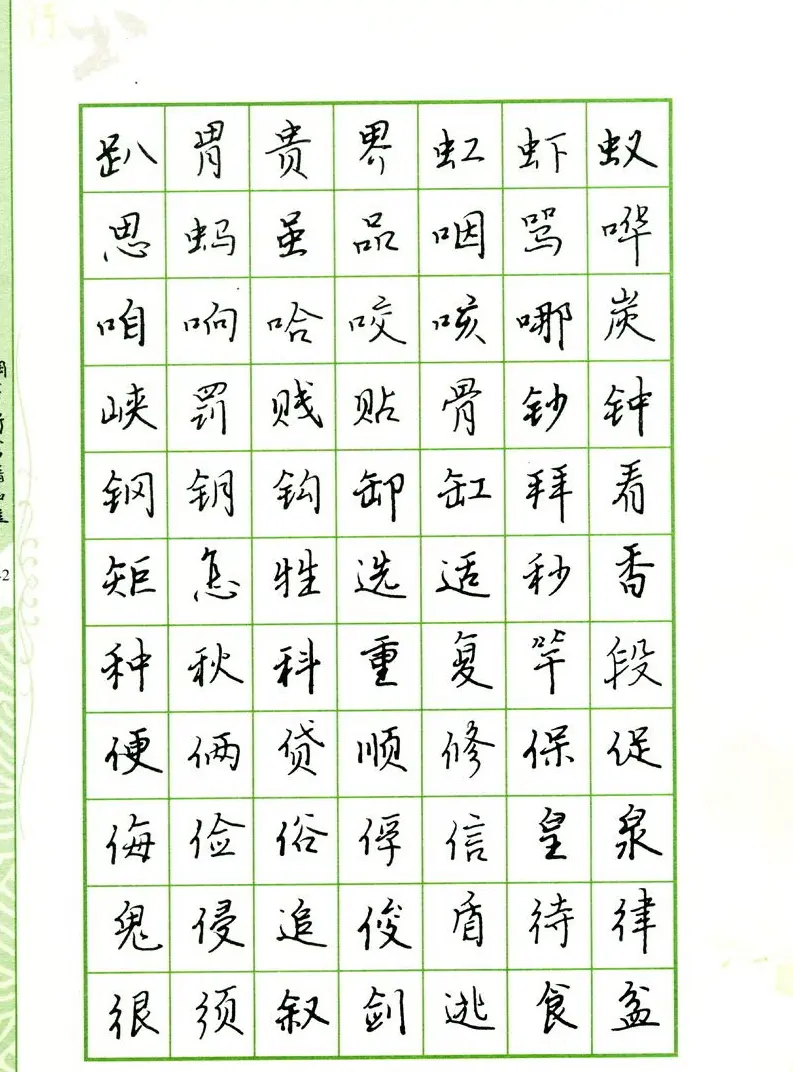 趴胃贵界虹虾蚁
思蚂虽品咽骂哗
咱响哈咬咳哪炭
峡罚贱贴骨钞钟
钢钥钩卸缸拜看
矩怎牲选适秒香
种秋科重复竿段
便俩贷顺修保促
侮俭俗俘信皇泉
鬼侵追俊盾待律
很须叙剑逃食盆